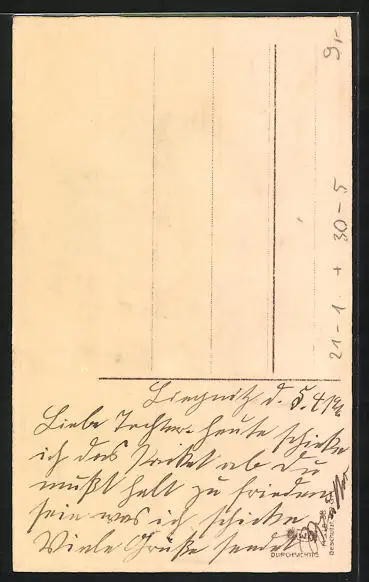 Liegnitz d. 5. 4 19
Liebe Tochter. Heute schicke
ich das Packet ab du
mußt halt zu frieden
sein was ich schicke
Viele Grüße sendet
9,-
21-1 + 30-5